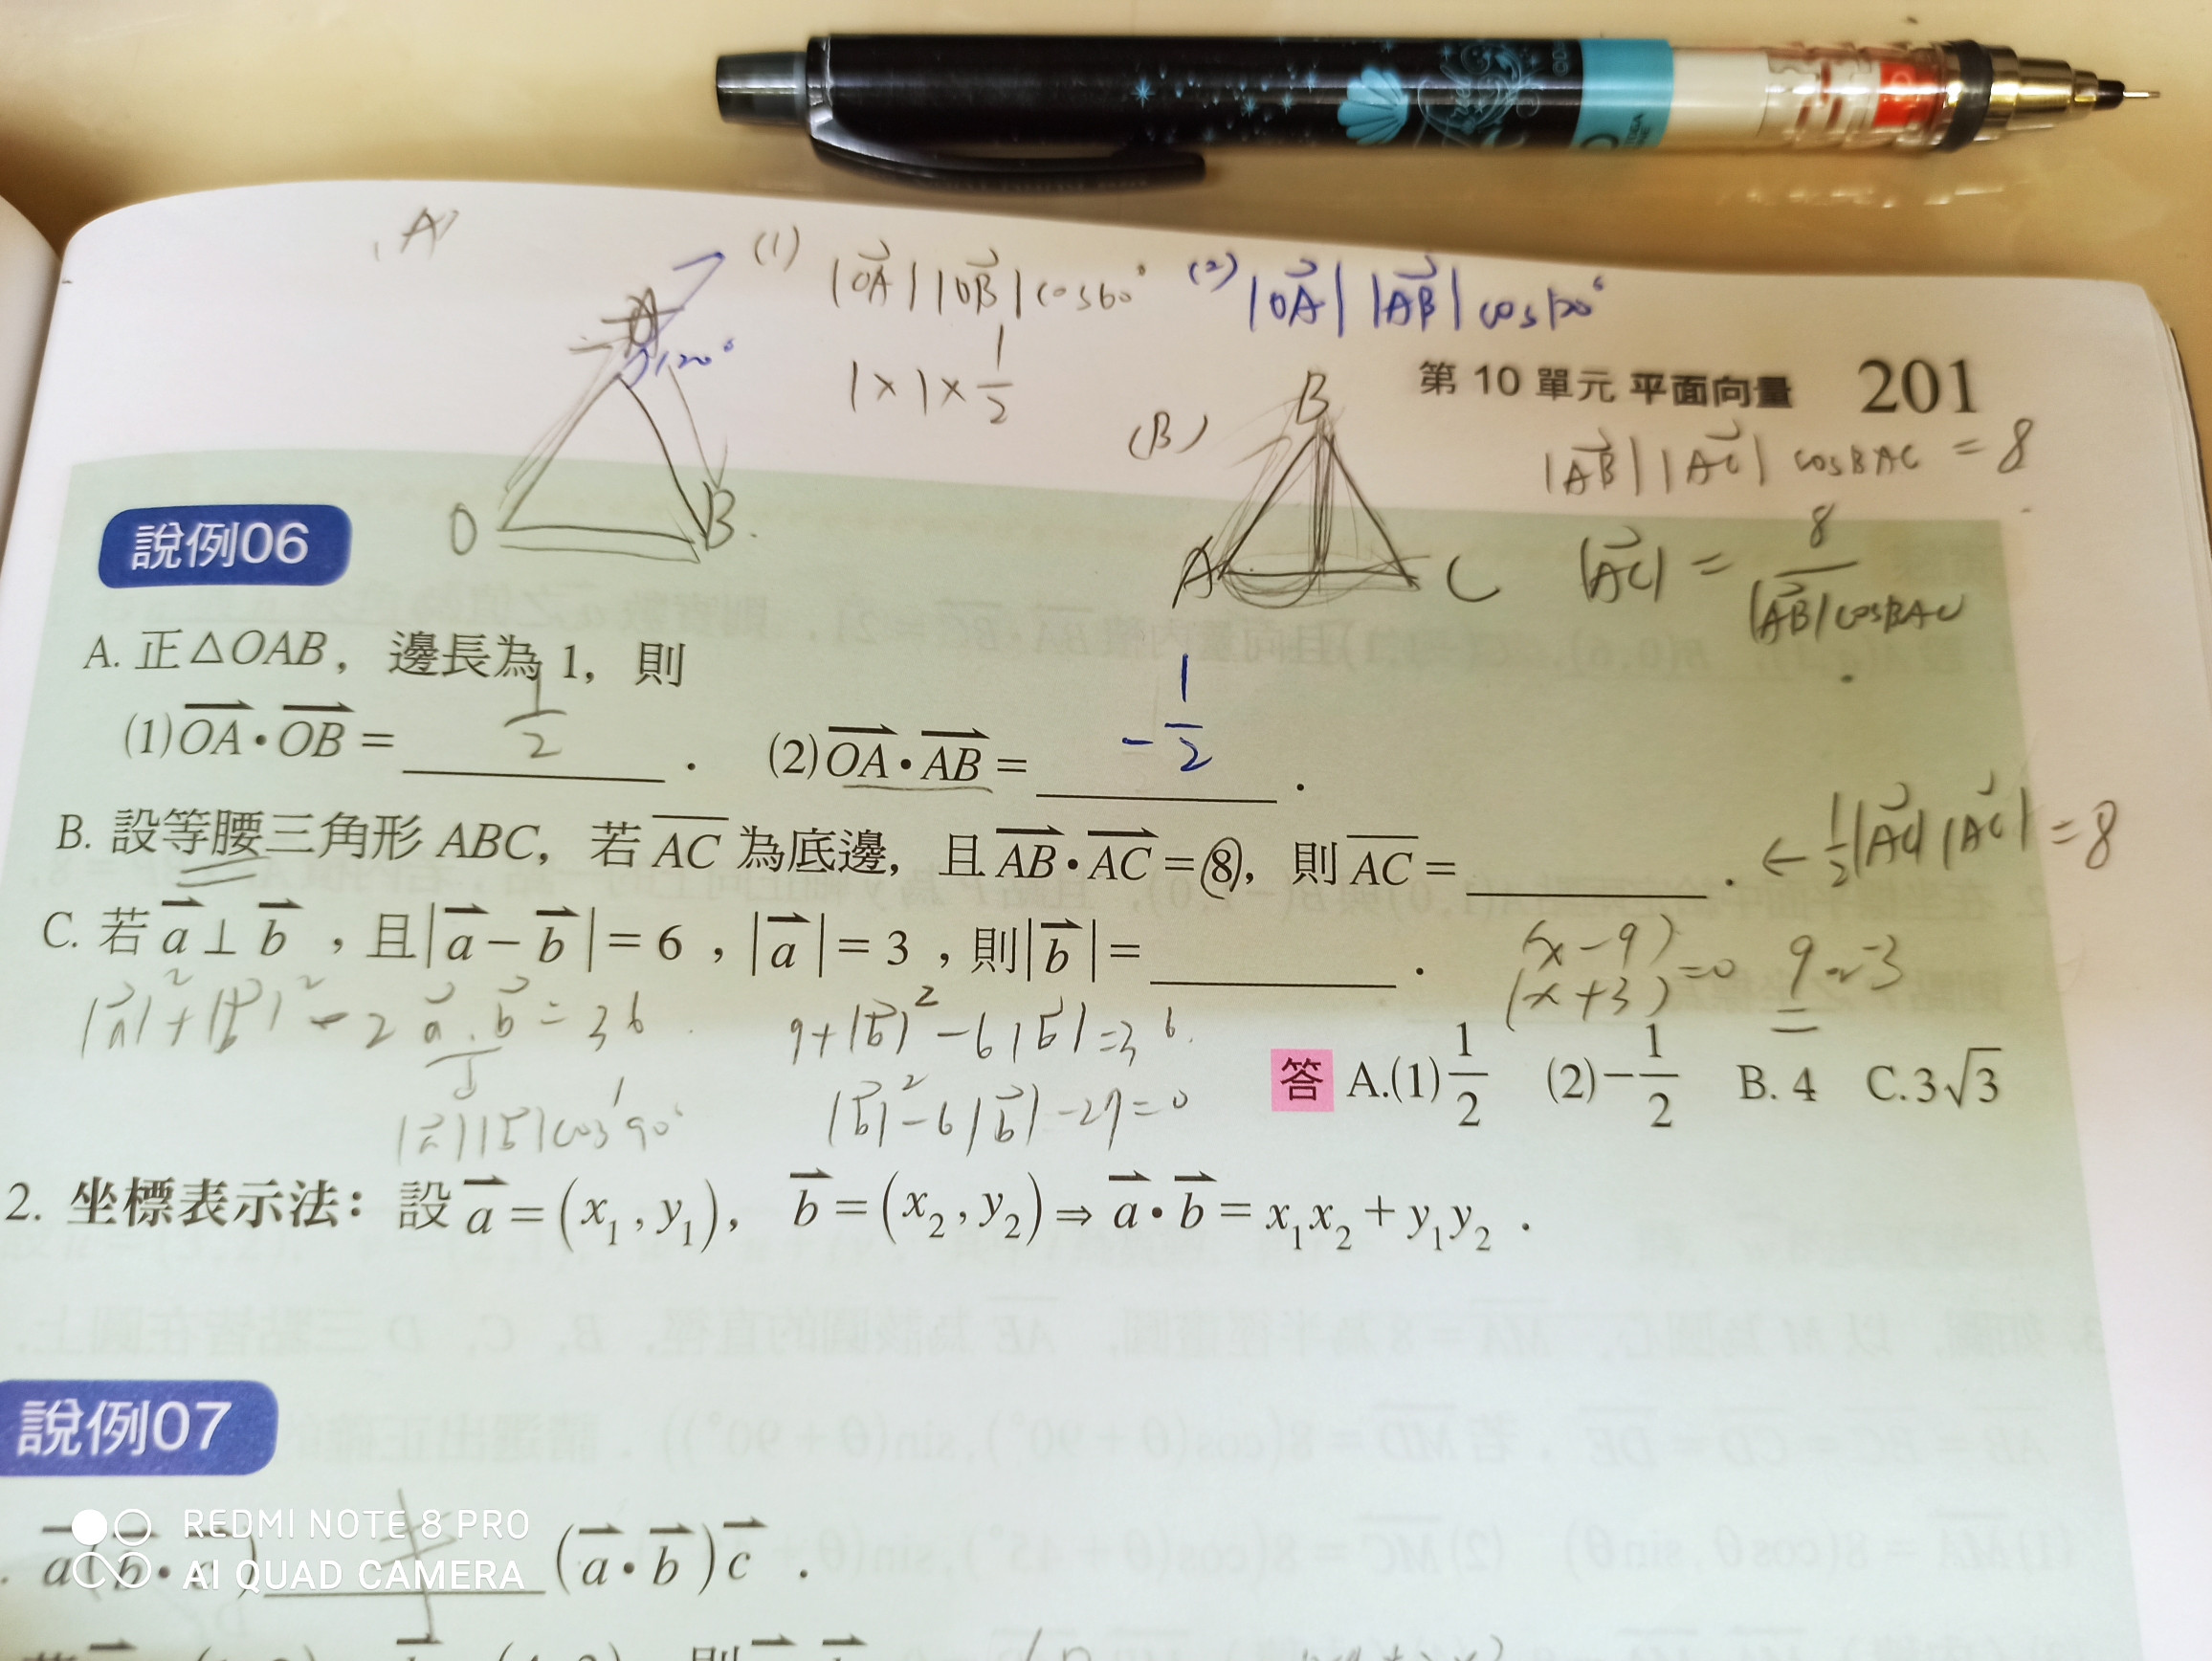 (A)
(1) |OA| |OB| cos60°
(2) |OA| |AB| cos120°
1×1×1/2
120°
O
B
第 10 單元 平面向量 201
(B)
B
A
C
|AB| |AC| cosBAC = 8
|AC| = 8/(|AB|cosBAC)
說例06
A. 正△OAB，邊長為 1，則
(1) OA • OB = 1/2 . (2) OA • AB = -1/2 .
B. 設等腰三角形 ABC，若 AC 為底邊，且 AB • AC = 8，則 AC = ______ .
← 1/2 |AC| |AC| = 8
C. 若 a ⊥ b ，且 | a − b | = 6 ，| a | = 3 ，則 | b | = ______ .
(x-9)
(x+3) =0 9 or -3
|a|² + |b|² - 2 a . b = 36
9+|b|² - 6|b| = 36
|a||b|cos90°
|b|² - 6|b| - 27 = 0
答 A.(1) 1/2 (2) −1/2 B. 4 C. 3√3
2. 坐標表示法：設 a = (x₁ , y₁)， b = (x₂ , y₂) ⇒ a • b = x₁x₂ + y₁y₂ .
說例07
REDMI NOTE 8 PRO
AI QUAD CAMERA
a( b • c ) ≠ ( a • b ) c .